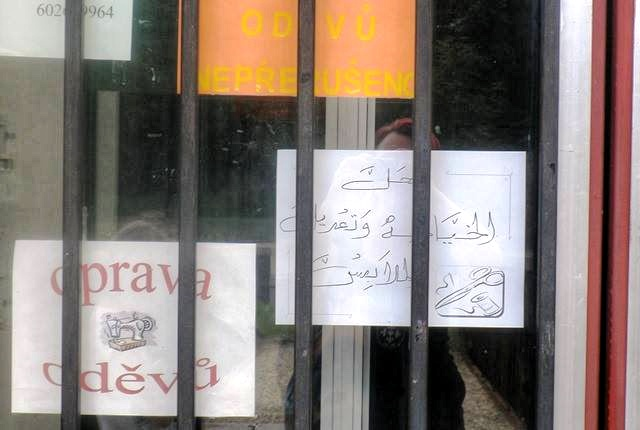 ODĚVŮ
NEPŘERUŠENO
محلّ
الخيَّاطة وَتعْديلات
الملابسُ
oprava
oděvů